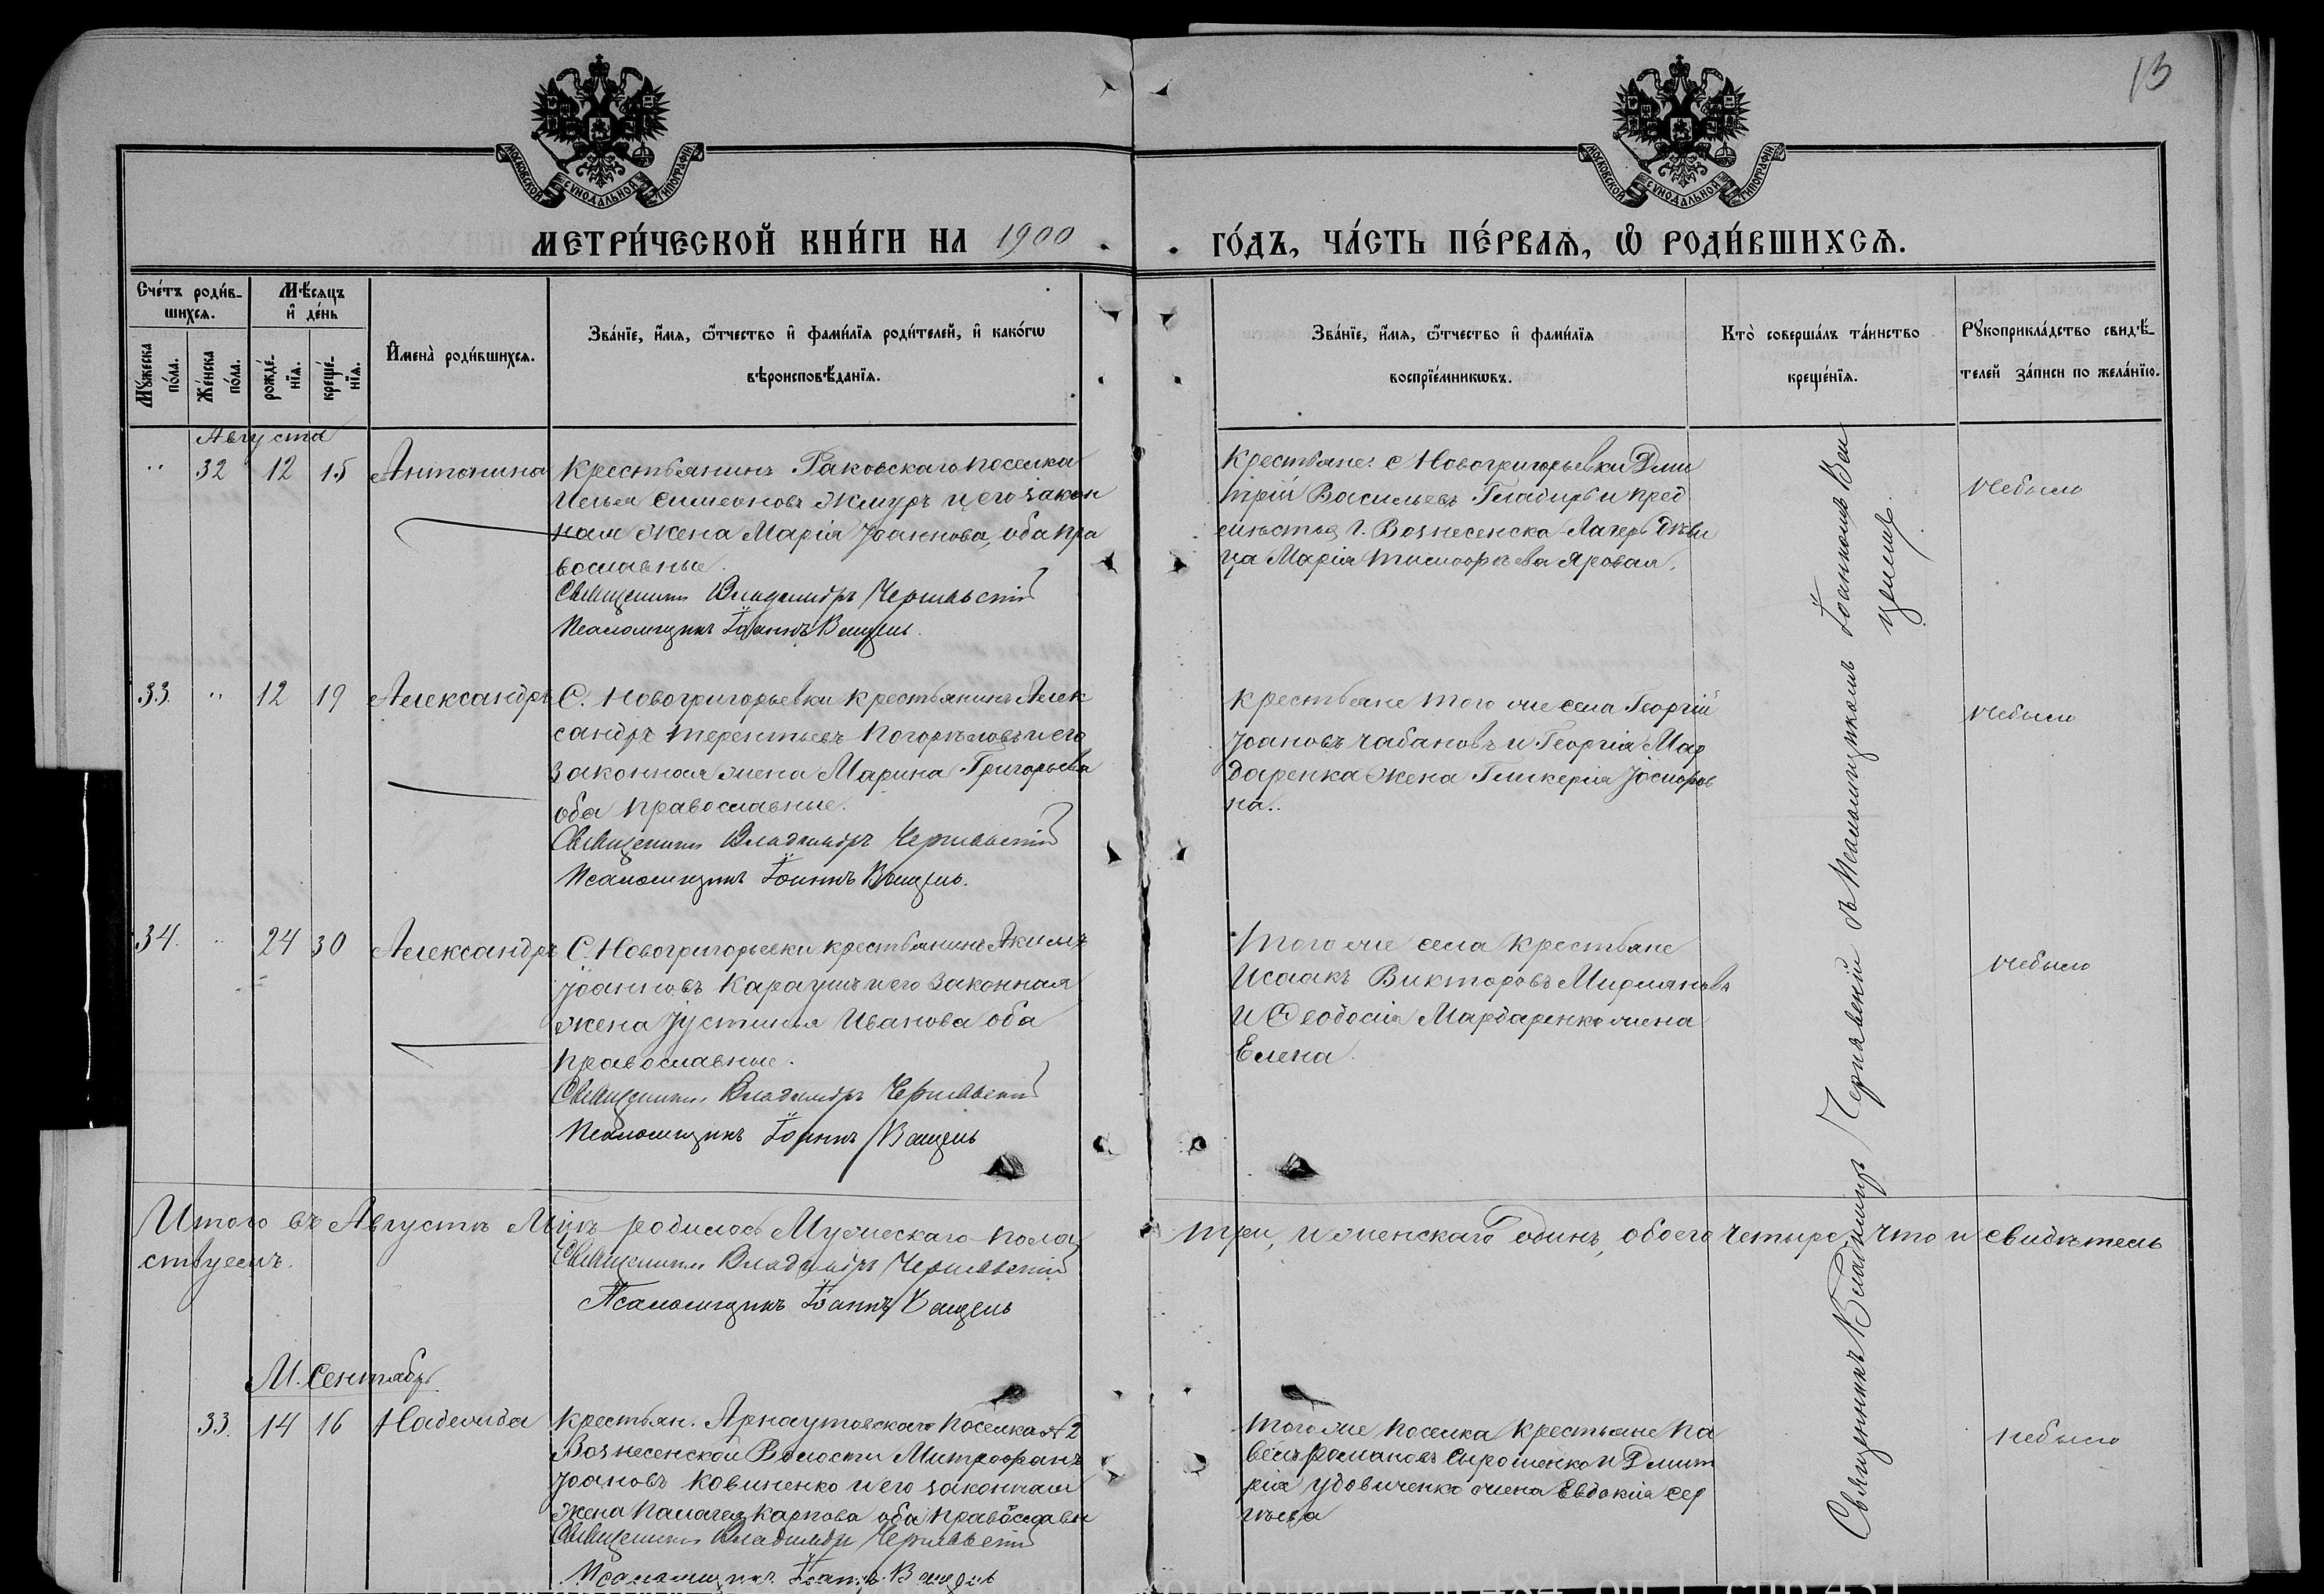 13
МОСКОВСКОЙ СУНОДАЛЬНОЙ ТИПОГРАФІИ
МОСКОВСКОЙ СУНОДАЛЬНОЙ ТИПОГРАФІИ
МЕТРИ́ЧЕСКОЙ КНИ́ГИ НА 1900
ГО́ДЪ, ЧА́СТЬ ПЕ́РВАѦ, Ѡ҆ РОДИ́ВШИХСѦ.
Сче́тъ роди́в-
шихсѧ.
Мꙋ́жеска по́ла.
Же́нска по́ла.
Мѣ́сяцъ
и҆ де́нь
рожде́-нїѧ.
креще́-нїѧ.
И҆мена̀ роди́вшихсѧ.
Зва́нїе, и҆́мѧ, ѻ҆́тчество и҆ фами́лїѧ роди́телей, и҆ како́гѡ
вѣроисповѣ́данїѧ.
Зва́нїе, и҆́мѧ, ѻ҆́тчество и҆ фами́лїѧ
воспрїе́мникѡвъ.
Кто̀ соверша́лъ та́инство
креще́нїѧ.
Рꙋкоприкла́дство свидѣ́-
телей за́писи по жела́нїю.
Августа
" 32 12 15 Антонина
Крестьянинъ Раковскаго поселка
Илья Симеоновъ Жмуръ и его закон
ная жена Марія Іоаннова, оба пра
вославные.
Священникъ Владиміръ Чернявскій
Псаломщикъ Іоаннъ Ващенъ.
Крестьяне: с Новогригорьевки Дми
трій Васильевъ Гладырь и пред
мѣстья г. Вознесенска-Лагерь дѣви
ца Марія Тимофѣева Яровая.
Небыло
33. " 12 19 Александръ
С. Новогригорьевки крестьянинъ Алек
сандръ Терентьевъ Погорѣловъ и его
законная жена Марина Григорьева
оба православные.
Священникъ Владиміръ Чернявскій
Псаломщикъ Іоаннъ Ващенъ.
Крестьяне того же села Георгій
Іоановъ Чабановъ и Георгія Мар
даренка жена Гликерія
на..
Небыло
34. " 24 30 Александръ
С. Новогригорьевки крестьянинъ Акимъ
Іоанновъ Караушъ и его законная
жена Іустинья Иванова оба
православные.
Священникъ Владиміръ Чернявскій
Псаломщикъ Іоаннъ Ващенъ
Того же села крестьяне
Исаакъ Викторовъ
и Ѳеодосія Мардаренко жена
Елена.
Небыло
Священникъ Владиміръ Чернявскій съ Псаломщикомъ Іоанномъ Ва
щенемъ.
Итого въ Августѣ М-цѣ родилось Мужескаго пола три, и женскаго одинъ, обоего четыре, что и свидѣтель
ствуемъ.
Священникъ Владиміръ Чернявскій
Псаломщикъ Іоаннъ Ващенъ
М. Сентябрь
33. 14 16 Надежда
Крестьян. Арнаутовскаго поселка № 2
Вознесенской Волости Митрофанъ
Іоановъ Ковиненко и его законная
жена Палагея Карпова оба православн
Священникъ Владиміръ Чернявскій
Псаломщикъ Іоаннъ Ващенъ
Того же поселка крестьяне Па
велъ Романовъ Сырошенко и Дмит
рія Удовиченко жена Евдокія Сер
гѣева
Небыло